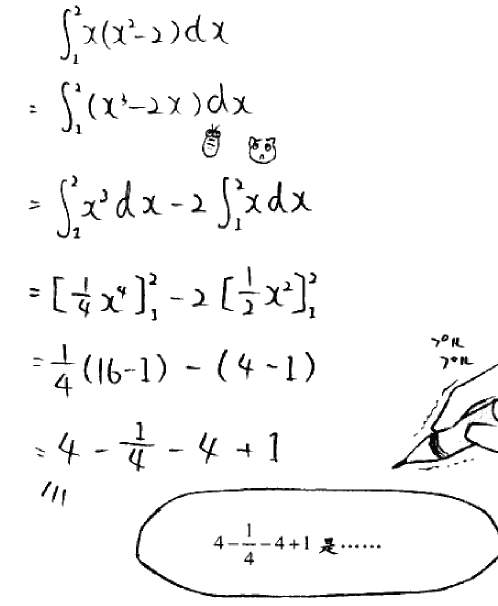 ∫₁² x(x²-2)dx
= ∫₁² (x³-2x)dx
= ∫₁² x³dx - 2∫₁² xdx
= [1/4 x⁴]₁² - 2[1/2 x²]₁²
= 1/4 (16-1) - (4-1)
= 4 - 1/4 - 4 + 1
4-1/4-4+1 是……